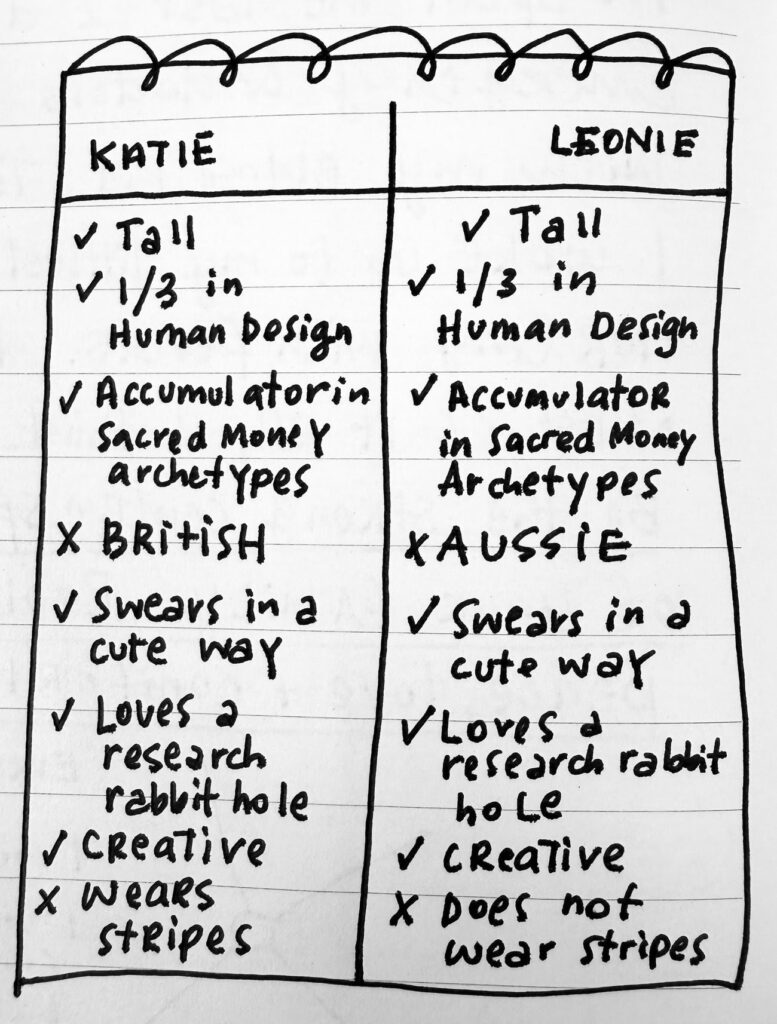 KATIE
✓ Tall
✓ 1/3 in
Human Design
✓ Accumulator in
Sacred Money
archetypes
X BRitiSH
✓ Swears in a
cute way
✓ Loves a
research
rabbit hole
✓ CReative
X WeaRs
stRipes
LEONIE
✓ Tall
✓ 1/3 in
Human Design
✓ AccumulatoR
in Sacred Money
Archetypes
X AUSSiE
✓ Swears in a
cute way
✓ Loves a
research rabbit
hoLe
✓ CReative
X Does not
wear stripes